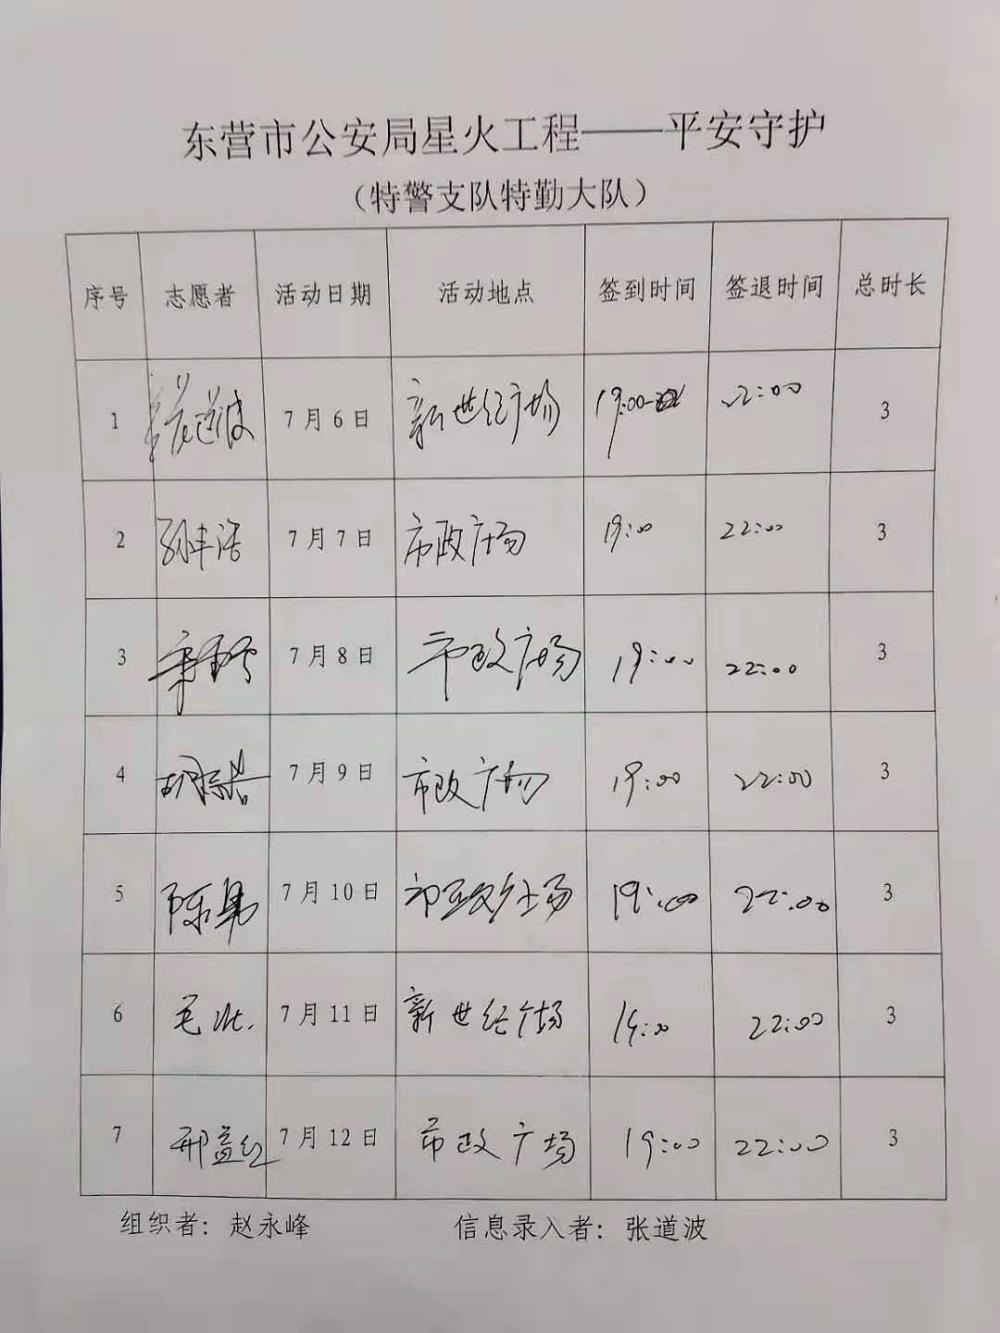 东营市公安局星火工程——平安守护
（特警支队特勤大队）
序号 志愿者 活动日期 活动地点 签到时间 签退时间 总时长
1 道波 7月6日 新世纪广场 19:00 22:00 3
2 孙丰浩 7月7日 市政广场 19:00 22:00 3
3 7月8日 市政广场 19:00 22:00 3
4 胡 7月9日 市政广场 19:00 22:00 3
5 陈 7月10日 市政广场 19:00 22:00 3
6 毛 7月11日 新世纪广场 19:00 22:00 3
7 邢益红 7月12日 市政广场 19:00 22:00 3
组织者：赵永峰 信息录入者：张道波